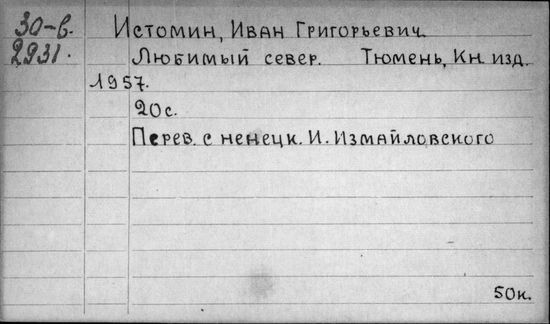 30-в.
2931.
Истомин, Иван Григорьевич.
Любимый север. Тюмень, Кн. изд.
1957.
20с.
Перев. с ненецк. И. Измайловского
50к.